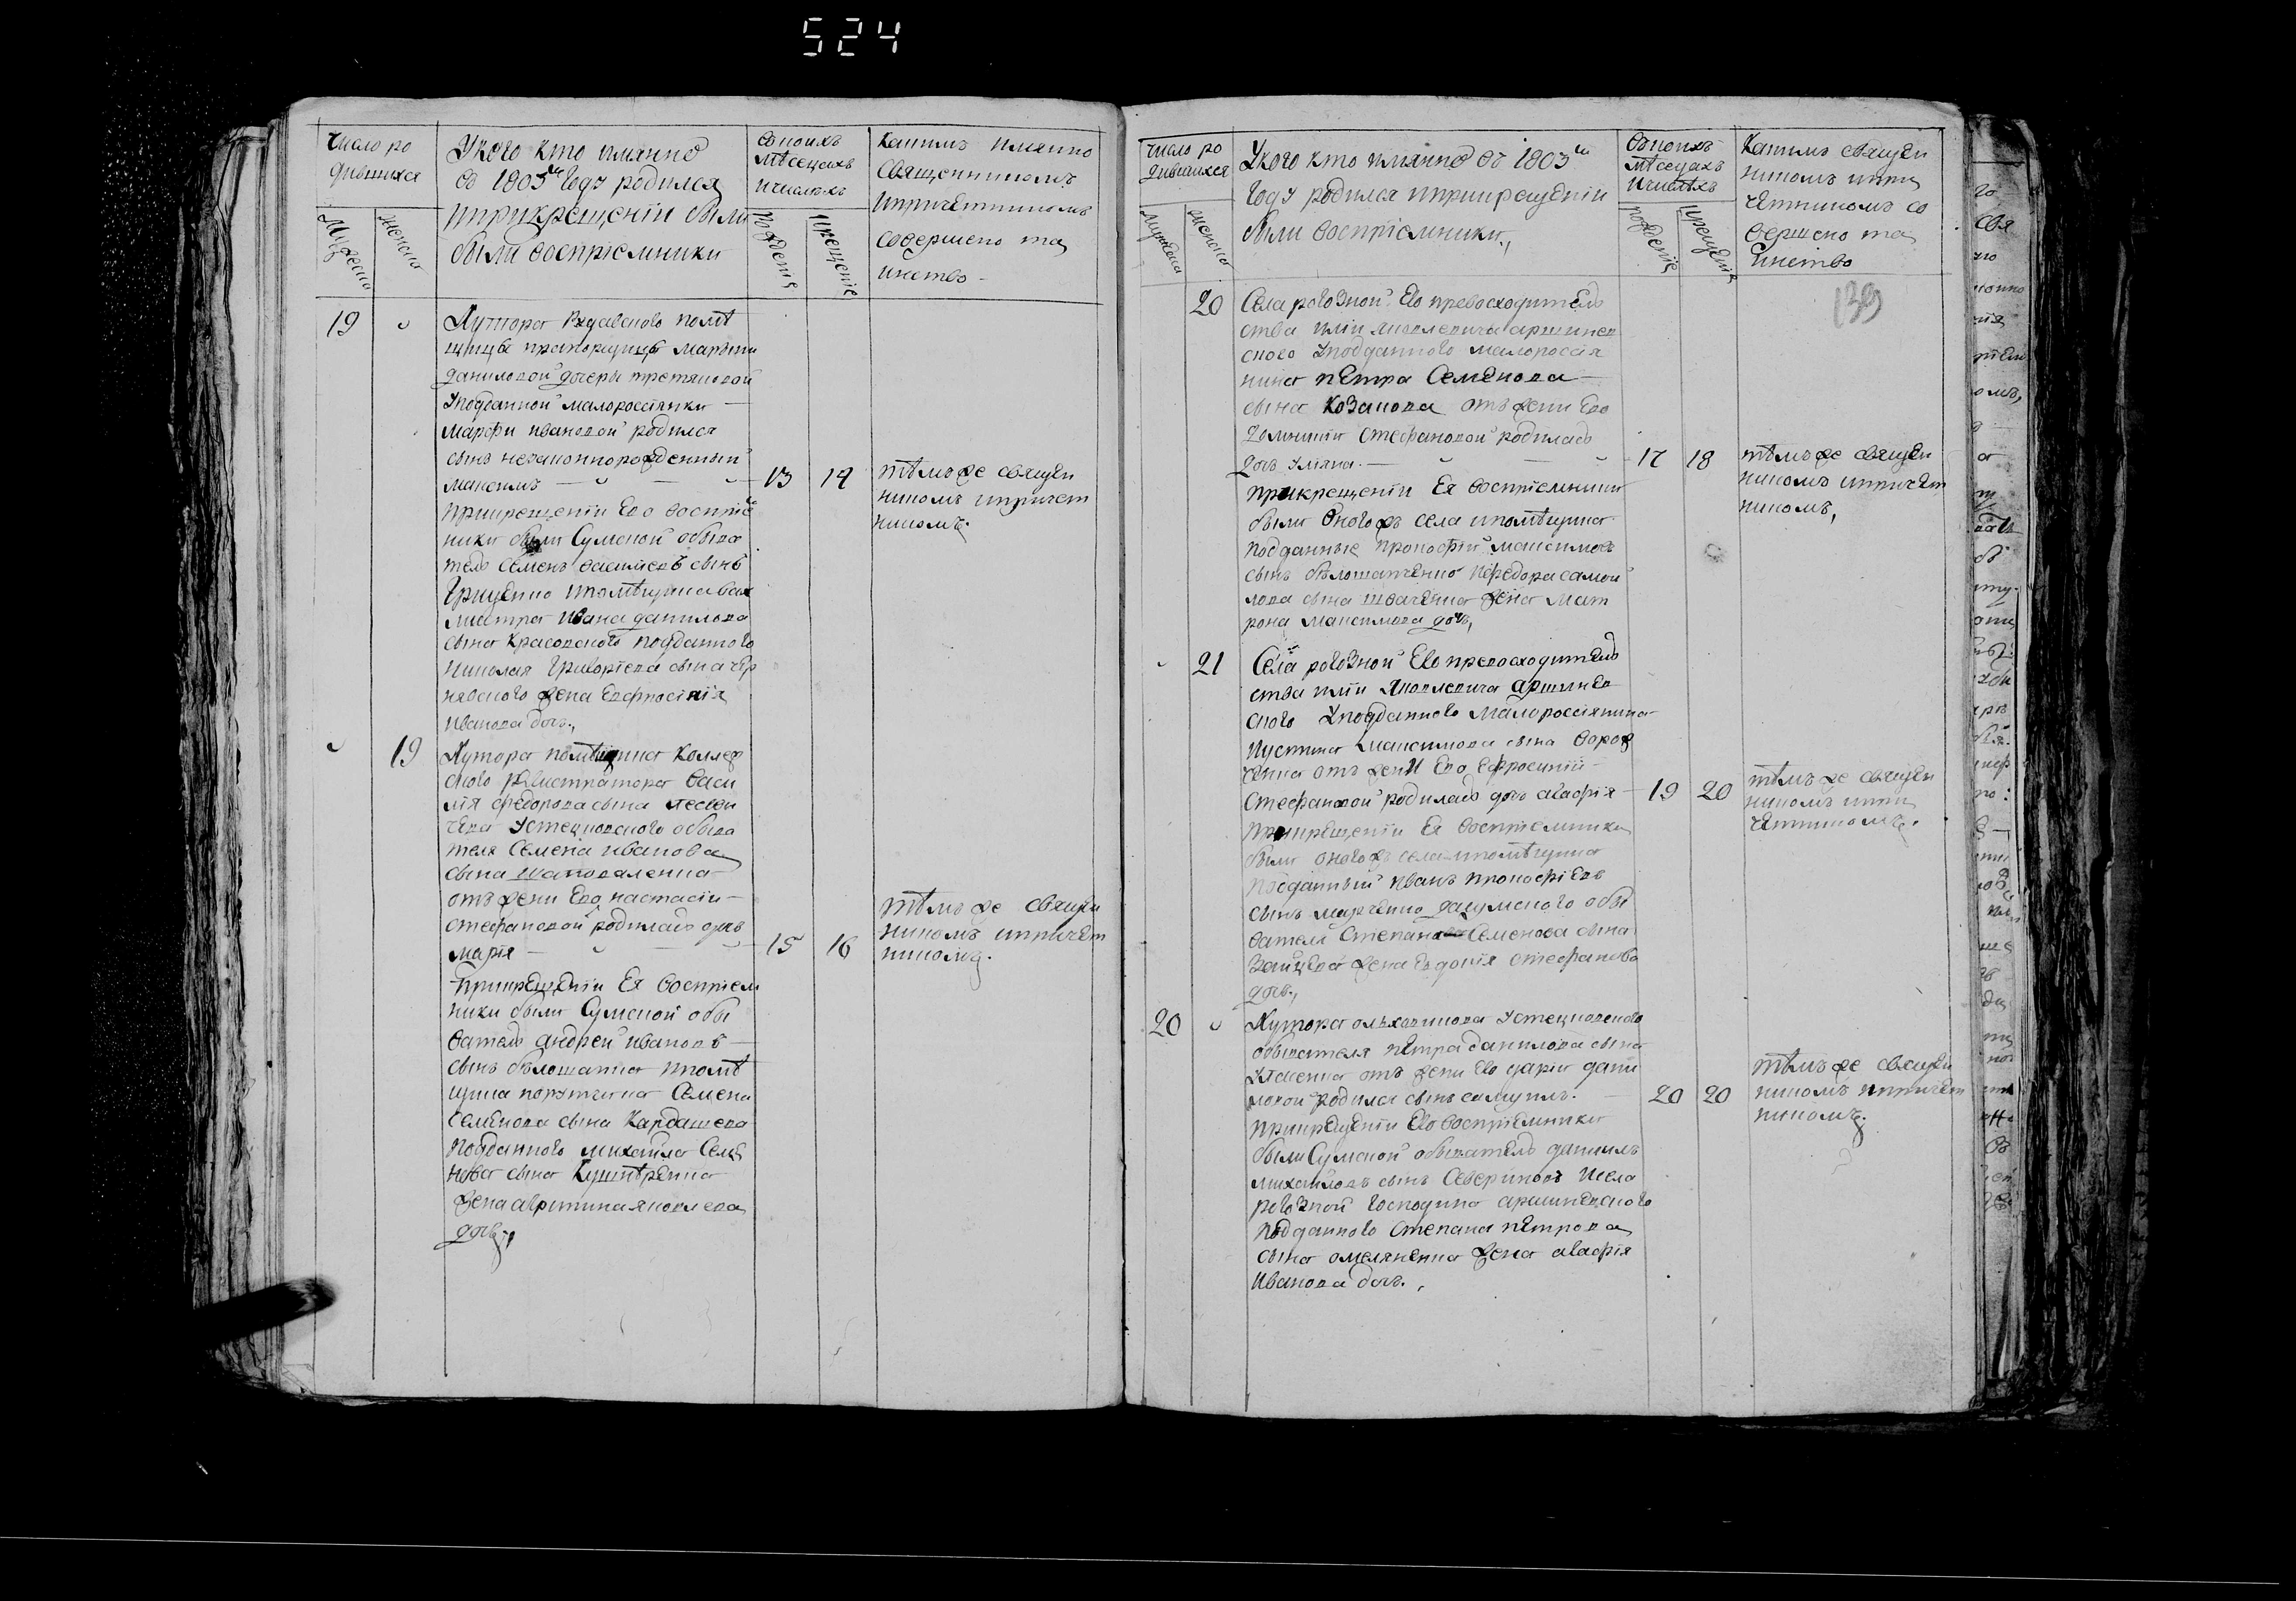 524
Число ро
дившихся
Мужеска
женска
Укого кто имянно
въ 1803м Году родился
и при крещении были
были восприемники
Вкоихъ
мѣсецахъ
и числѣхъ
рождения
крещение
Какимъ имянно
Священникомъ
и причетникомъ
совершено та
инство
19
Хутора помѣ
щицы прапорщицы Марфы
даниловой дочери третяковой
Уподданной малороссіянки
марфи ивановой родился
сынъ незаконнорожденный
максимъ
13 14
при крещеніи Его восприем
ники были Сумской обыва
тель Семенъ василиевъ сынъ
Грищенко и помѣщика вах
мистра Ивана данилова
сына Красовского подданного
николая Григориева сына чер
нявского жена Евфросиния
Иванова дочь,
тѣмъ же священ
никомъ и причет
никомъ.
19
Хутора помѣщика Коллеж
ского регистратора Васи
лія федорова сына лесеви
чева Устецковского обыва
теля Семена иванова
сына шаповаленка
отъ жени Его настасіи
стефановой родилась дочь
марія
15 16
При крещеніи Ея восприем
ники были Сумской обы
ватель андрей ивановъ
сынъ бѣлошапка и помѣ
щика порутчика Семена
Семенова сына Кардашева
подданного михайла Семе
нова сына Кушнѣренка
жена акритина яковлева
дочь,
тѣмъ же священ
никомъ и причет
никомъ.
Число ро
дившихся
мужеска
женска
Укого кто имянно въ 1803м
Году родился и при крещеніи
были восприемники,
Въ коихъ
мѣсецахъ
и числѣхъ
рождения
крещения
Какимъ священ
никомъ и при
четникомъ со
вершено та
инство
139
20
Села роговной Его превосходитель
ства илии яковлевича аршинев
ского Уподданного малороссія
нина пЕтра Семенова
сына Козакова отъ жени Его
домникии стефановой родилась
дочь уляна.
17 18
при крещеніи Ея восприемники
были Оногожъ села и помѣщика
подданные прокофий максимовъ
сынъ бѣлошапченко и федора самой
лова сына швачёнка жена мат
рона Максимова дочь,
тѣмъ же священ
никомъ и причет
никомъ,
21
Села роговной Его превосходитель
ства илии яковлевича аршинев
ского Уподданного малороссіянина
иустина максимова сына Ворож
ченка отъ жени Его Ефросинии
стефановой родилась дочь агафія
19 20
при крещеніи Ея восприемники
были оногожъ села и помѣщика
подданный иванъ прокофиевъ
сынъ марченко да сумского обы
вателя Степана Семенова сына
Зайцева жена Евдокія стефанова
дочь,
тѣмъ же священ
никомъ и при
четникомъ.
20
Хутора ольховикова Устецковского
обывателя пЕтра данилова сына
отъ жени Его дарии дани
ловой родился сынъ самуилъ.
20 20
при крещеніи Его восприемники
были Сумской обыватель даниилъ
михайловъ сынъ Севериновъ и села
роговной Господина аршиневского
подданного Степана пЕтрова
сына омеляненка жена агафія
Иванова дочь.,
тѣмъ же священ
никомъ и причет
никомъ.